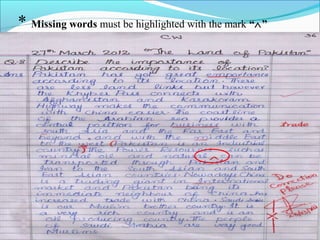 * Missing words must be highlighted with the mark "^"
CW
36
27th March 2012 "The Land of Pakistan"
Q.8 Describe the importance of
Pakistan according to its location?
Ans Pakistan has got great emportance
according to its location. There
are less land links but however
the Khyber Pass connects with
Afghanistan and Karakoram
Highway makes the communication
with China easier. The coastline
of the Arabian sea provides a
central position for business with trade
South Asia and the Far East and
beyond and with the middle East
to the west. (Pakistan is an Industrial
country) The Power Resources such as
mineral oil and natural ^ can be
transported through Pakistan and
Iran to the South Asian and South
East Asian countries. Nowadays China
is a trading giant in International
market and Pakistan being the
immediate neighbour of China has
increased trade with China. Saudi
is our Muslim brother country. It is
a very rich country and is an
oil producing country. The people
of Saudi Arabia are very good
Muslims.
Do